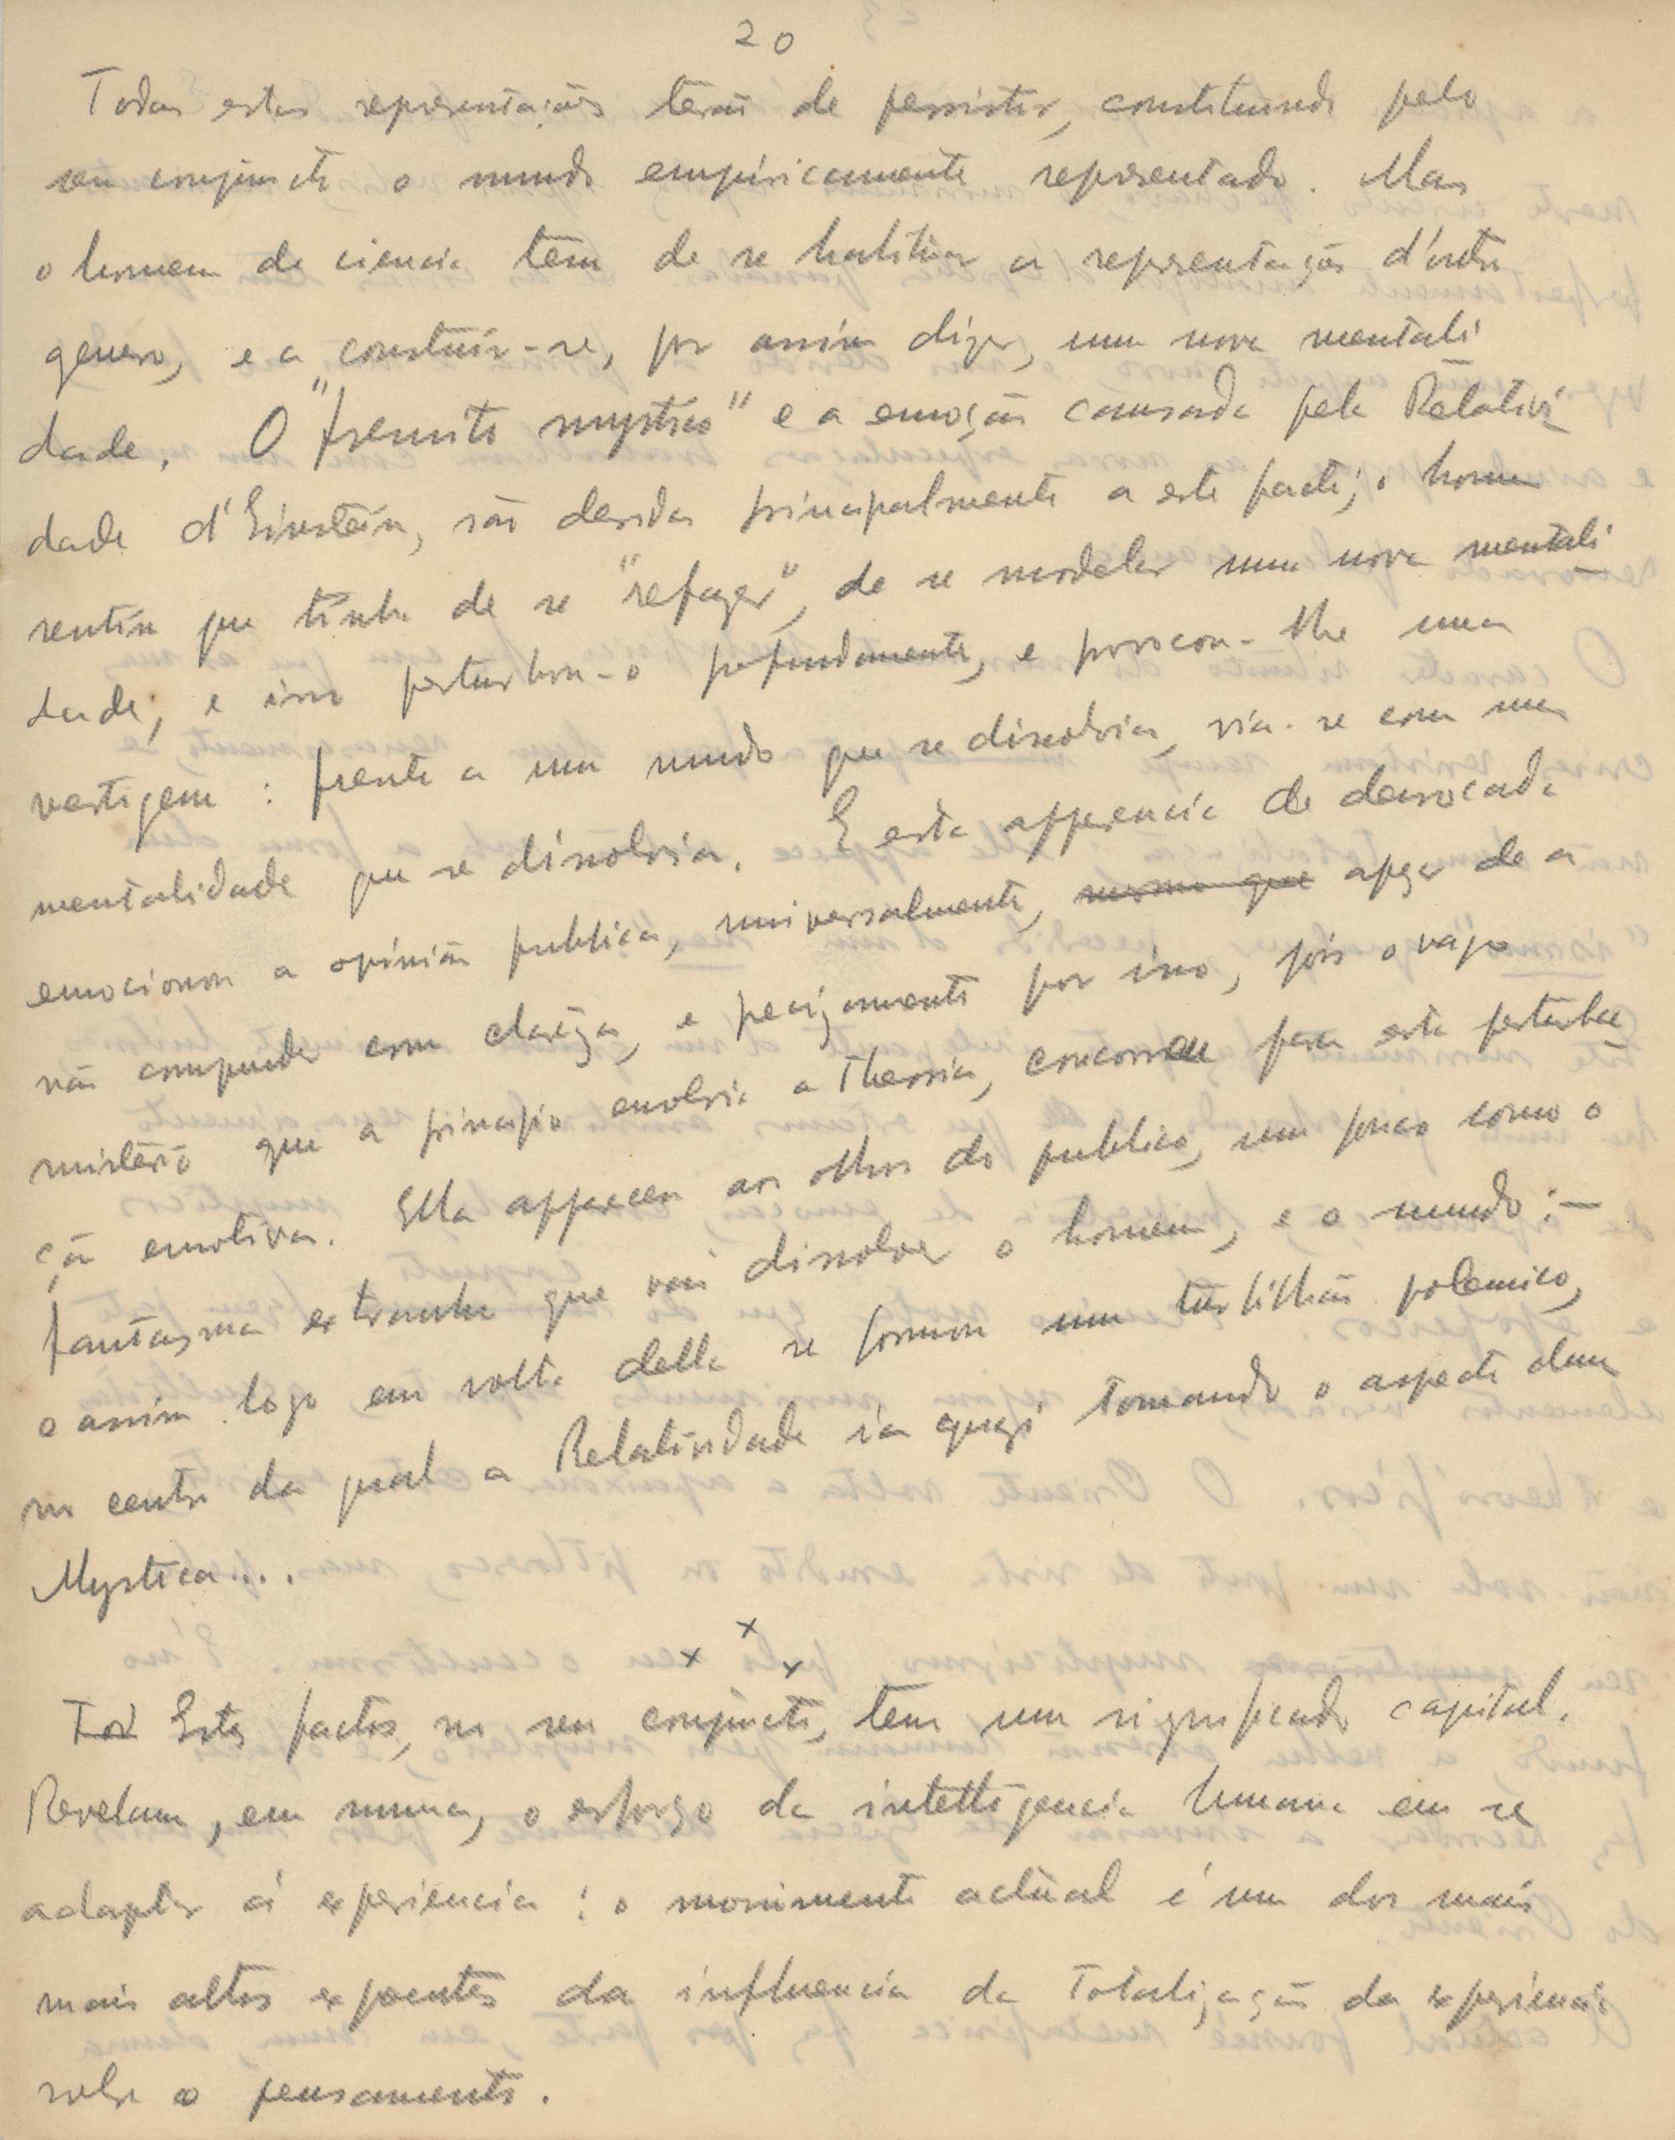 20
Todas estas representações terão de persistir, constituindo pelo
seu conjuncto o mundo empiricamente representado. Mas
o homem de ciencia tem de se habituar a representações d'outro
genero, e a construir-se, por assim dizer, uma nova mentali
dade. O "fremito mystico" e a emoção causada pela Relativi
dade d'Einstein, são devidas principalmente a este facto; o homem
sentiu que tinha de se "refazer", de se modelar uma nova mentali
dade; e isso perturbou-o profundamente, e provocou-lhe uma
vertigem: frente a um mundo que se dissolvia, via-se com uma
mentalidade que se dissolvia. E esta apparencia de derrocada
emocionou a opinião publica, universalmente, mesmo que apezar de a
não comprender com clareza, e precizamente por isso, pois o vago
misterio que a principio envolvia a Theoria, concorreu para esta perturba
ção emotiva. Ella appareceu aos olhos do publico, um pouco como o
fantasma extranho que vai dissolver o homem, e o mundo: —
e assim logo em volta della se formou um turbilhão polemico,
no centro da qual a Relatividade ia quazi tomando o aspecto duma
Mystica....
x x x
Tod Estes factos, no seu conjuncto, tem um significado capital.
Revelam, em summa, o esforço da intelligencia humana em se
adaptar á experiencia: o movimento actual é um dos mais
mais altos expoentes da influencia da Totalização da experiencia
sobre o pensamento.